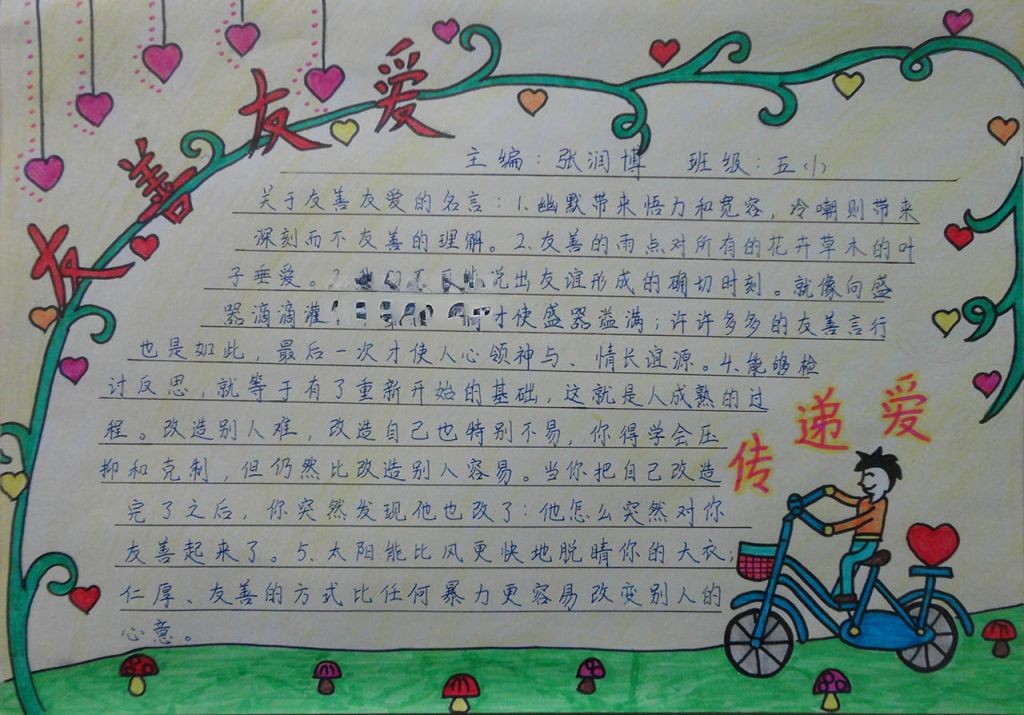 友善友爱
主编：张润博 班级：五(1)
关于友善友爱的名言：1.幽默带来悟力和宽容，冷嘲则带来
深刻而不友善的理解。2.友善的雨点对所有的花卉草木的叶
子垂爱。说出友谊形成的确切时刻。就像向盛
器滴滴灌才使盛器溢满；许许多多的友善言行
也是如此，最后一次才使人心领神与、情长谊源。4.能够检
讨反思，就等于有了重新开始的基础，这就是人成熟的过
程。改造别人难，改造自己也特别不易，你得学会压
抑和克制，但仍然比改造别人容易。当你把自己改造
完了之后，你突然发现他也改了：他怎么突然对你
友善起来了。5.太阳能比风更快地脱晴你的大衣；
仁厚、友善的方式比任何暴力更容易改变别人的
心意。
传递爱